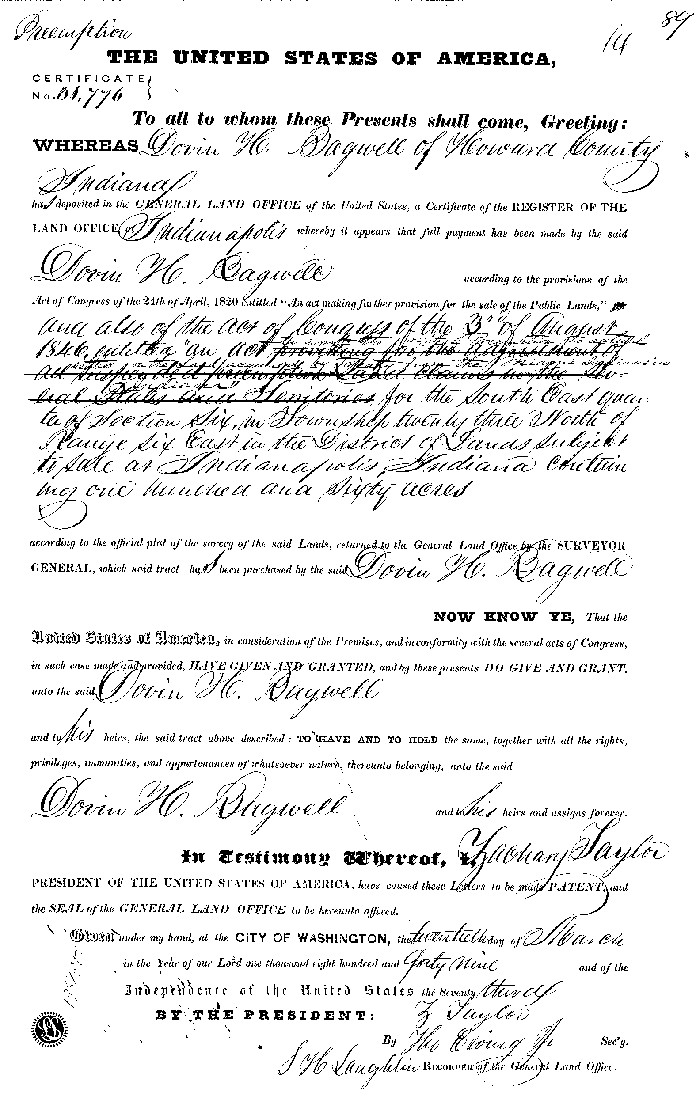 Preemption
14 89
THE UNITED STATES OF AMERICA,
CERTIFICATE
No. 31,776
To all to whom these Presents shall come, Greeting:
WHEREAS Dovin H. Bagwell of Howard County
Indiana
has deposited in the GENERAL LAND OFFICE of the United States, a Certificate of the REGISTER OF THE
LAND OFFICE at Indianapolis whereby it appears that full payment has been made by the said
Dovin H. Bagwell according to the provisions of the
Act of Congress of the 24th of April, 1820 entitled "An act making further provision for the sale of the Public Lands," for
and also of the act of Congress of the 3d of August
1846, entitled "an act providing for the adjustment of
all suspended preemption Land claims in the Sev-
eral States and Territories for the South East quar
ter of Section Six, in Township twenty three North of
Range Six East in the District of Lands subject
to sale at Indianapolis, Indiana contain
ing one hundred and sixty acres
according to the official plat of the survey of the said Lands, returned to the General Land Office by the SURVEYOR
GENERAL, which said tract has been purchased by the said Dovin H. Bagwell
NOW KNOW YE, That the
United States of America, in consideration of the Premises, and in conformity with the several acts of Congress,
in such case made and provided, HAVE GIVEN AND GRANTED, and by these presents DO GIVE AND GRANT,
unto the said Dovin H. Bagwell
and to his heirs, the said tract above described: TO HAVE AND TO HOLD the same, together with all the rights,
privileges, immunities, and appurtenances of whatsoever nature, thereunto belonging, unto the said
Dovin H. Bagwell and to his heirs and assigns forever.
In Testimony Whereof, I, Zachary Taylor
PRESIDENT OF THE UNITED STATES OF AMERICA, have caused these Letters to be made PATENT, and
the SEAL of the GENERAL LAND OFFICE to be hereunto affixed.
Given under my hand, at the CITY OF WASHINGTON, the twentieth day of March
in the Year of our Lord one thousand eight hundred and forty nine and of the
Independence of the United States the Seventy third
BY THE PRESIDENT: Z Taylor
By Tho Ewing Jr Sec'y.
S H Laughlin RECORDER of the General Land Office.
LS